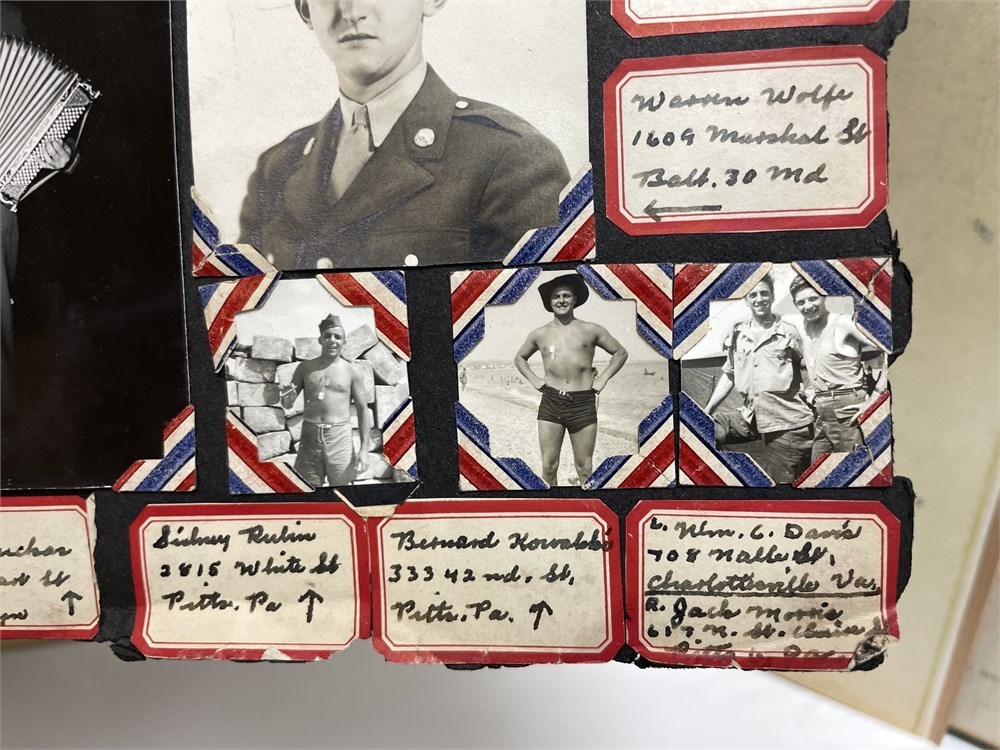 Warren Wolfe
1609 Marshal St
Balt. 30 Md
art St
Sidney Rubin
2815 White St
Pitts. Pa
Bernard Kowalski
333 42nd. St,
Pitts. Pa.
L. Wm. C. Davis
708 Nalle St,
Charlottesville Va,
R. Jack Morris
617 N. St. Clair